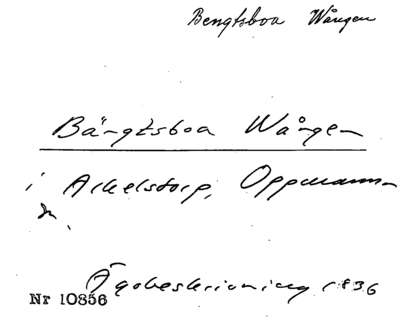 Bengtsboa Wången
Bängtsboa Wången
i Arkelstorp, Oppmanna
sn.
Ägobeskrivning 1836
Nr 10856